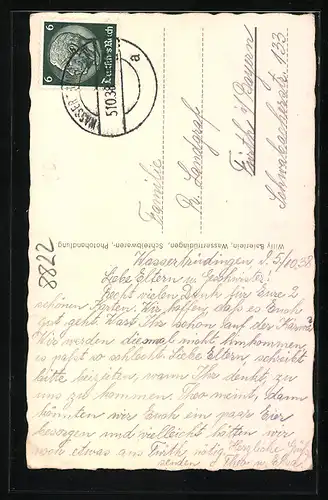 6 Deutsches Reich 6
WASSERTRÜDINGEN
5.10.38
a
Familie
K. Landgraf
Fürth i/Bayern
Schwabacherstr. 133
Willy Beierlein, Wassertrüdingen, Schreibwaren, Photohandlung
8822
Wassertrüdingen d. 5/10.38
Liebe Eltern u. Geschwister!
Herzl. vielen Dank für Eure 2
schönen Karten. Wir hoffen, daß es Euch
gut geht. Wart Ihr schon auf der
Wir werden diesmal nicht hinkommen,
es paßt so schlecht. Liebe Eltern, schreibt
bitte beizeiten, wann Ihr denkt, zu
uns zu kommen. Theo meint, dann
könnten wir Euch ein paar Eier
besorgen und vielleicht hätten wir
noch etwas aus Fürth nötig. Herzliche Grüße
senden Theo u.